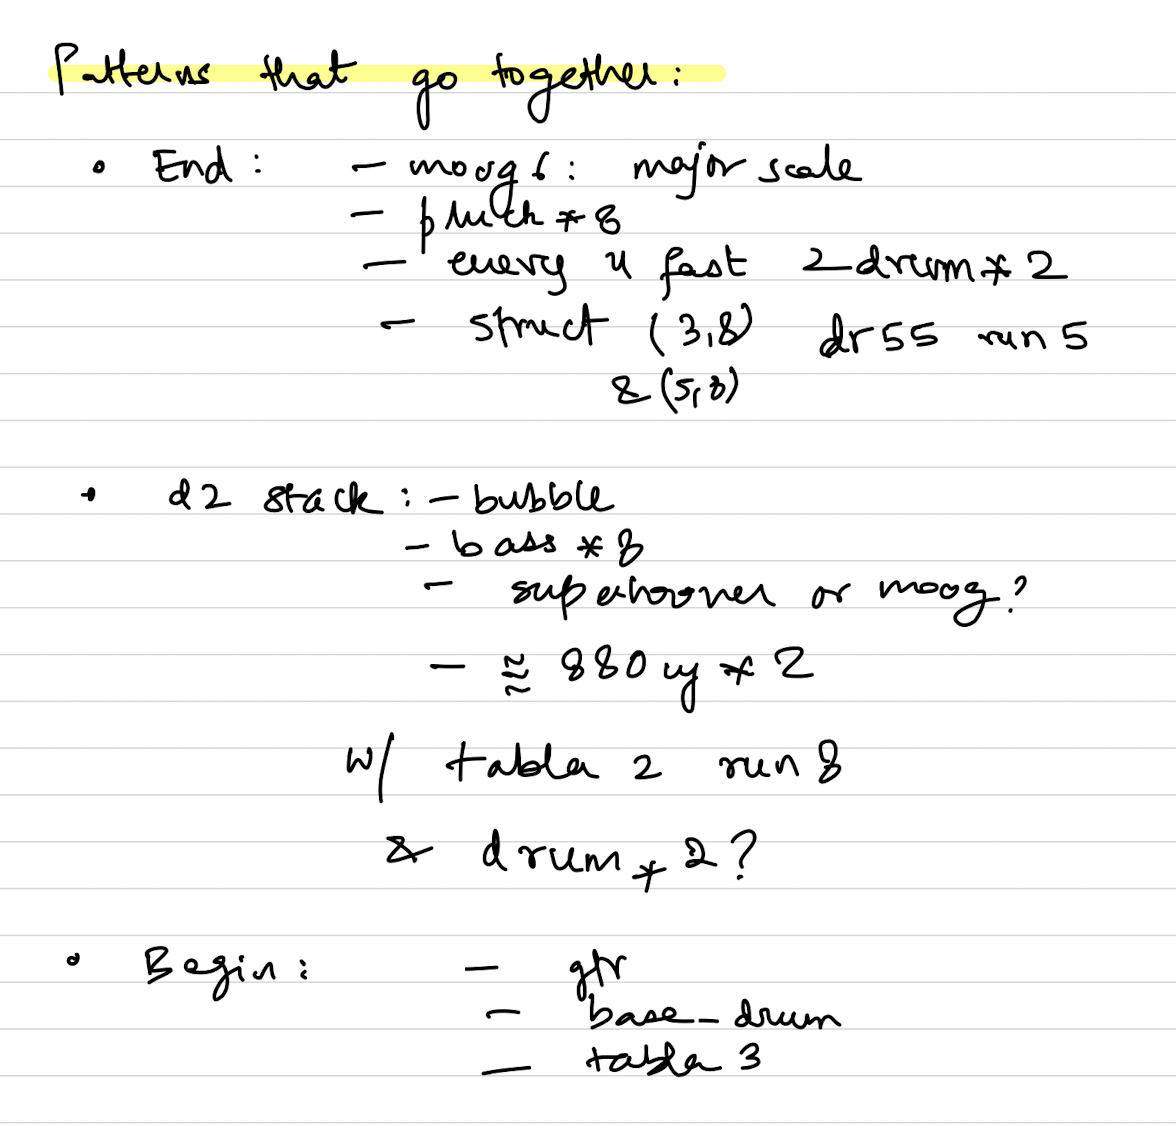 Patterns that go together:
• End: – moog 6: major scale
– pluck * 8
– every 4 fast 2 drum * 2
– struct (3,8) dr55 run 5
& (5,8)
• d2 stack: – bubble
– bass * 8
– superhoover or moog?
– ≈ 880 cy * 2
w/ tabla 2 run 8
& drum * 2?
• Begin: – gtr
– base_drum
– tabla 3